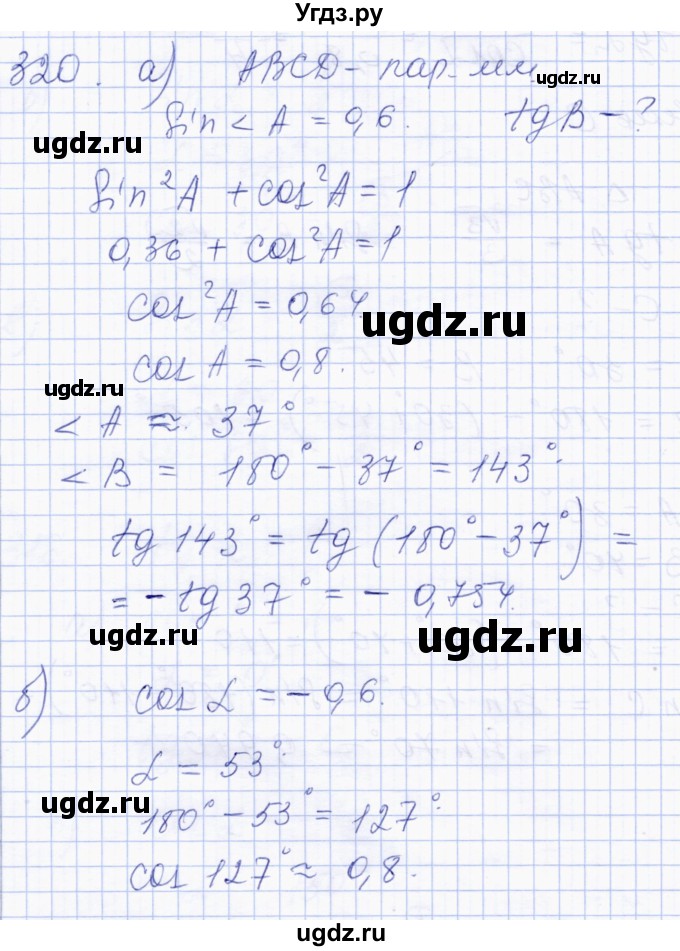 Угдз.ру
320. а) ABCD - пар-мм
ugdz.ru
sin < A = 0,6. tg B - ?
ugdz.ru
sin²A + cos²A = 1
0,36 + cos²A = 1
cos²A = 0,64.
ugdz.ru
cos A = 0,8.
ugdz.ru
< A ≈ 37°
< B = 180° - 37° = 143°.
tg 143° = tg (180° - 37°) =
= - tg 37° = - 0,754.
ugdz.ru
ugdz.ru
б) cos L = - 0,6.
L = 53°.
ugdz.ru
180° - 53° = 127°.
cos 127° ≈ 0,8.
©Угдз.ру